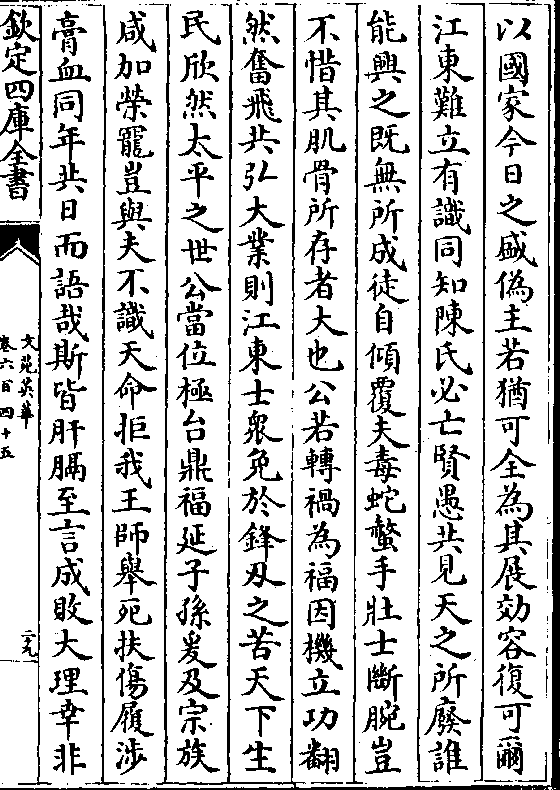 以國家今日之盛偽主若猶可全為其展効容復可爾
江東難立有識同知陳氏必亡賢愚共見天之所廢誰
能興之既無所成徒自傾覆夫毒蛇螫手壯士斷腕豈
不惜其肌骨所存者大也公若轉禍為福因機立功翻
然奮飛共弘大業則江東士衆免於鋒刄之苦天下生
民欣然太平之世公當位極台鼎福延子孫爰及宗族
咸加榮寵豈與夫不識天命拒我王師舉死扶傷履涉
膏血同年共日而語哉斯皆肝膈至言成敗大理幸非
欽定四庫全書
文苑英華
卷六百四十五
二九